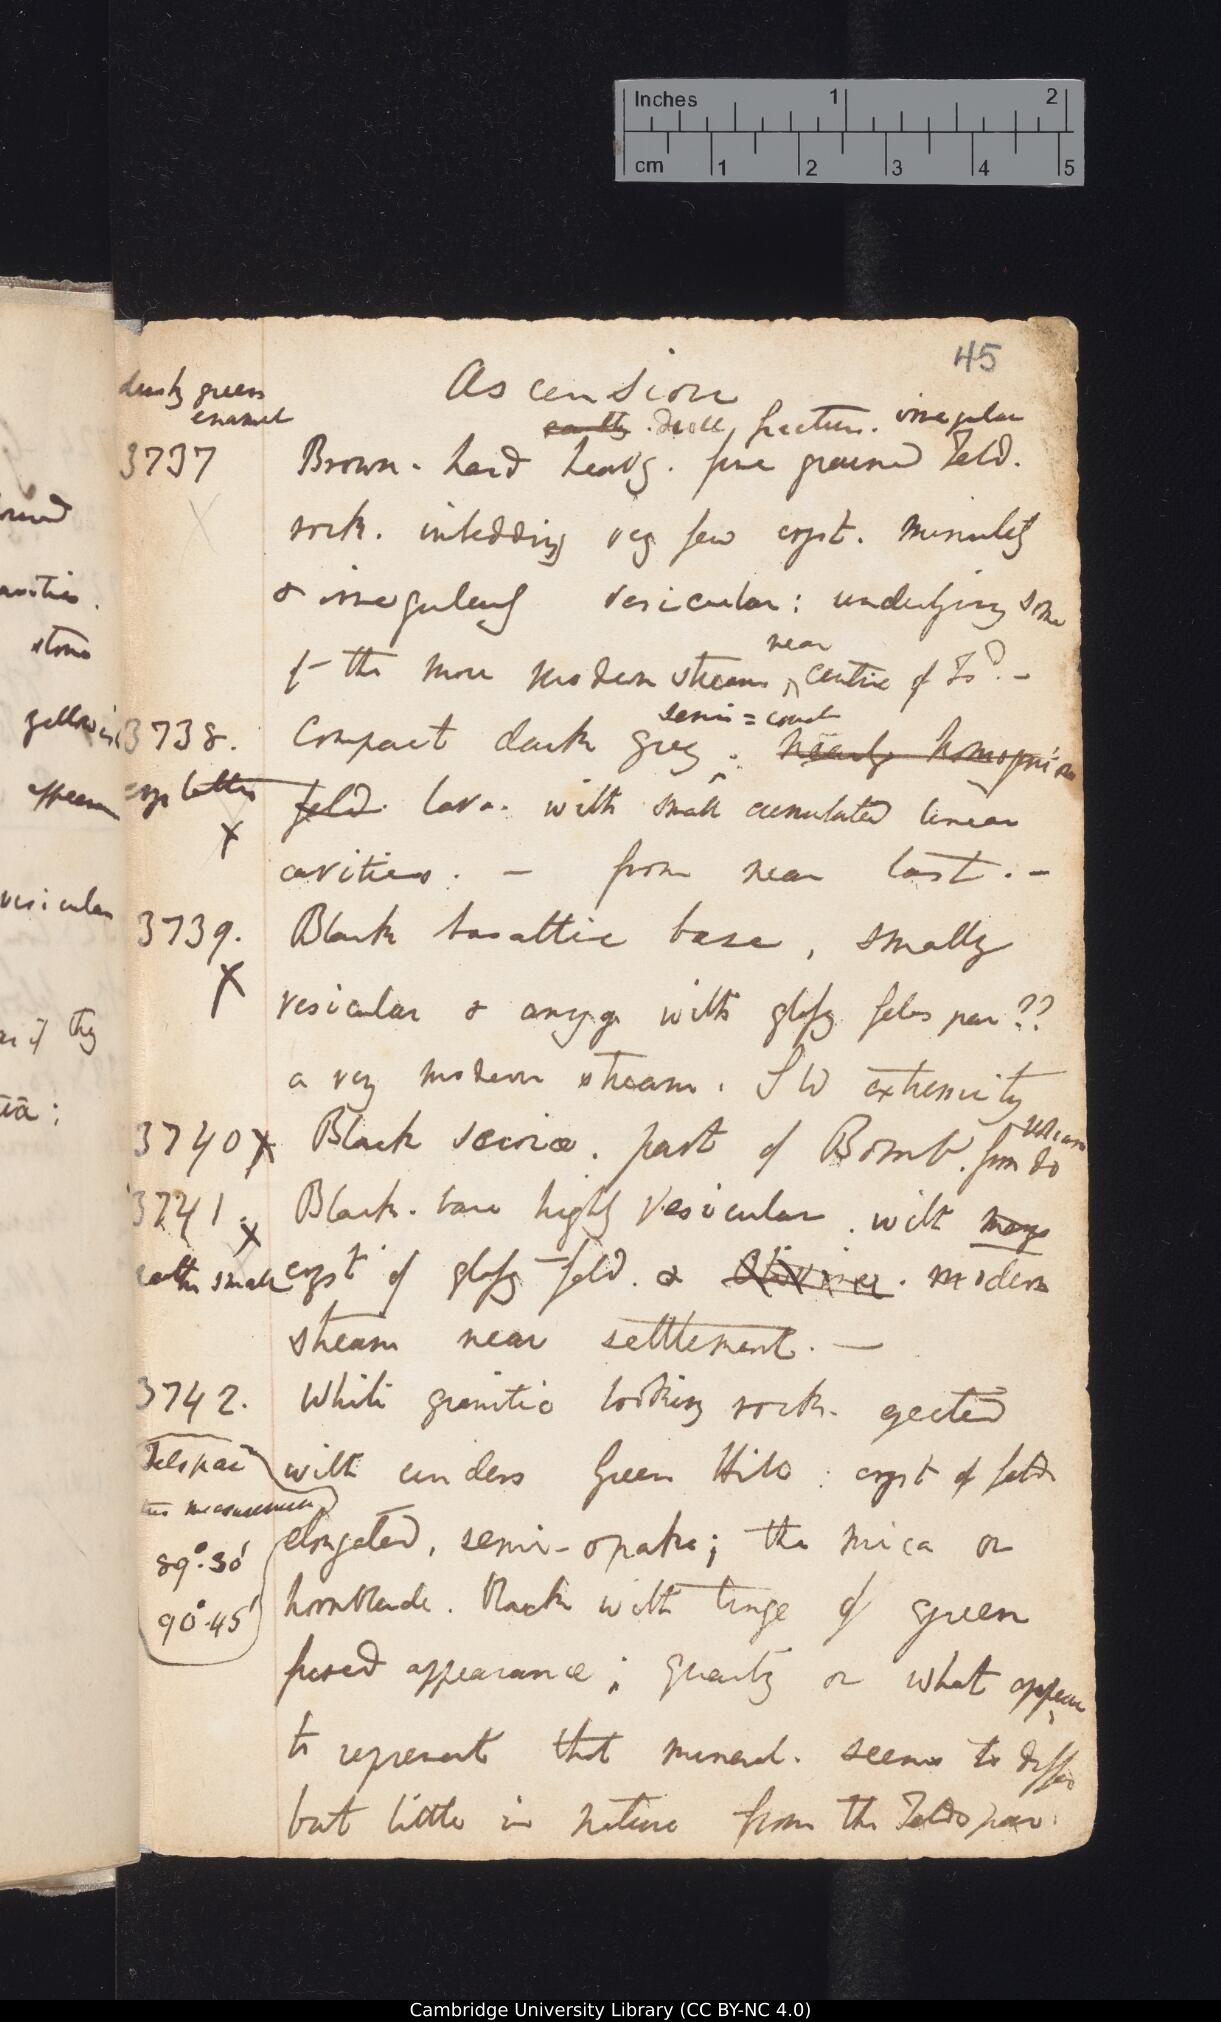 Inches 1 2
cm 1 2 3 4 5
45
Ascension
dusky green
enamel
earthy. dull, fracture. irregular
3737 Brown. hard heavy. fine grained Feld.
rock. imbedding very few cryst. minutely
& irregularly vesicular: underlying some
of the more modern streams, near centre of Isd. —
3738. Compact dark grey; semi=conch nearly homogenious
feld. lava. with small accumulated linear
X
cavities. — from near last. —
3739. Black basaltic base, smally
X
vesicular & amyg with glassy felspar??
a very modern stream. SW extremity
3740 X Black scoriæ. part of Bomb. from do
3741. X Black. base highly vesicular. with many
rather small cryst of glassy feld. & Olivines. modern
stream near settlement. —
3742. White granitic looking rock. ejected
Felspar with cinders Green Hill: cryst of felds
measurement
elongated, semi-opake; the mica or
89°.30'
hornblende. black with tinge of green
90°.45'
fused appearance; quartz or what appears
to represent that mineral. seems to differ
but little in nature from the Feldspar.
vesicular
they
Cambridge University Library (CC BY-NC 4.0)